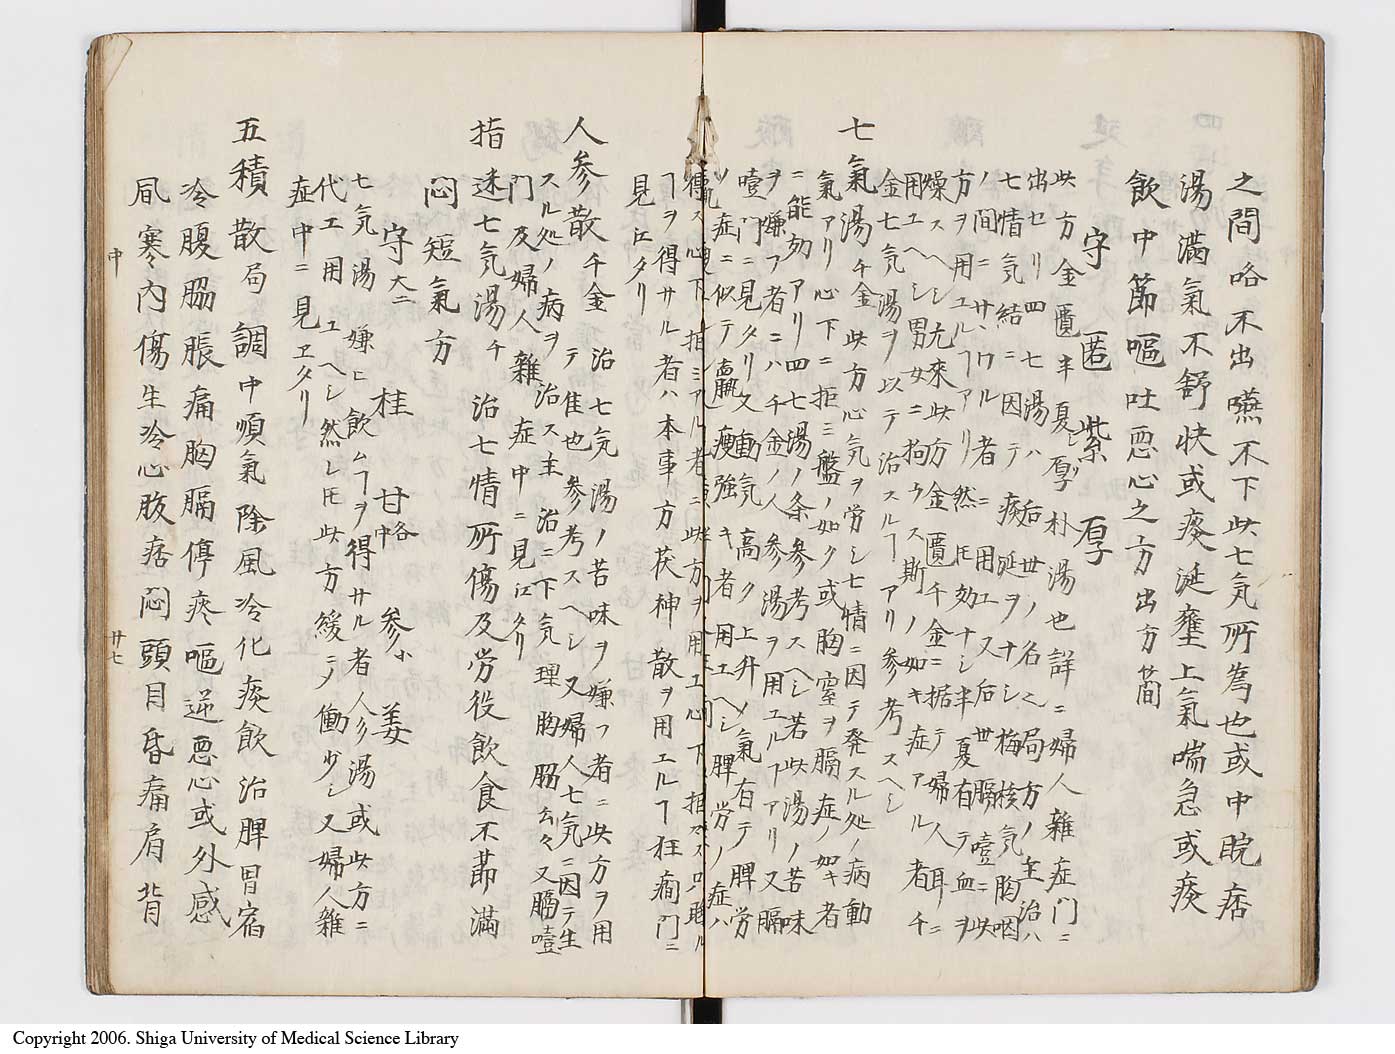 之間咯不出嚥不下此七気所為也或中脘痞
湯満氣不舒快或痰涎壅上氣喘急或痰
飲中節嘔吐悪心之方出方蕳
守 匿 紫 厚
此方金匱半夏厚朴湯也詳ニ婦人雜症門ニ
出セリ四七湯ハ后世ノ名く局方ノ主治ハ
七情気結ニ因テ痰涎ヲナシ梅核気胸咽
ノ間ニサヽワル者ニ用エス后世膈噎ニ此
方ヲ用ユルヿアリ然𪜈効ナシ半夏有テ血ヲ
燥スヘシ尢來此方金匱千金ニ据テ婦人耳ニ
用ユヘシ男女ニ拘ラス斯ノ如キ症アル者千
金七気湯ヲ以テ治スルヿアリ参考スヘシ
七氣湯千金 此方心気ヲ労シ七情ニ因テ発スル処ノ病動
氣アリ心下ニ拒ミ盤ノ如ク或胸窒ヲ膈症ノ如キ者
ニ能効アリ四七湯ノ条参考スヘシ若此湯ノ苦味
ヲ嫌フ者ニハ千金ノ人参湯ヲ用エルヿアリ又膈
噎門ニ見タリ又動気高ク上升〆氣有テ脾労
ノ症ニ似テ羸痩強キ者用エヘシ脾労ノ症ハ
ヿヲ得サル者ハ本事方茯神散ヲ用エルヿ狂癇門ニ
見江タリ
人参散千金 治七気湯ノ苦味ヲ嫌フ者ニ此方ヲ用
テ隹也参考スヘシ又婦人七気ニ因テ生
スル処ノ病ヲ治ス主治ニ下気理胸脇云々又膈噎
門及婦人雜症中ニ見江タリ
指迷七気湯千 治七情所傷及労役飲食不莭滿
悶短氣方
守大二 桂 甘中 参小 姜
七気湯嫌ヒ飲ムヿヲ得サル者人参湯或此方ニ
代エ用ユヘシ然レ𪜈此方緩ニテ働少シ又婦人雜
症中ニ見ヱタリ
五積散局 調中順氣除風冷化痰飲治脾胃宿
冷腹脇脹痛胸膈停痰嘔逆悪心或外感
風寒内傷生冷心腹痞悶頭目昏痛肩背
中
廿七
Copyright 2006. Shiga University of Medical Science Library